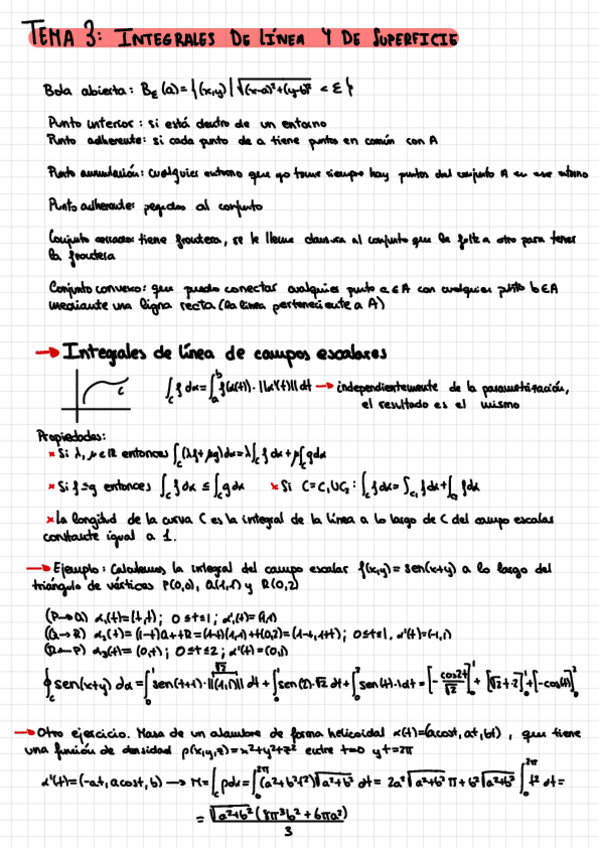 TEMA 3: INTEGRALES DE LÍNEA Y DE SUPERFICIE
Bola abierta: B_ε(a) = {(x,y) | √((x-a)²+(y-b)²) < ε}
Punto interior: si está dentro de un entorno
Punto adherente: si cada punto de a tiene puntos en común con A
Punto acumulación: cualquier entorno que yo tome siempre hay puntos del conjunto A en ese entorno
Punto adherente: pegados al conjunto
Conjunto cerrado: tiene frontera, se le llama clausura al conjunto que le falta a otro para tener
la frontera
Conjunto convexo: que puedo conectar cualquier punto a∈A con cualquier punto b∈A
mediante una línea recta (la línea perteneciente a A)
→ Integrales de línea de campos escalares
C
∫_C f dα = ∫_a^b f(α(t))·||α'(t)|| dt → independientemente de la parametrización,
el resultado es el mismo
Propiedades:
× Si λ, μ ∈ ℝ entonces ∫_C (λf + μg)dα = λ∫_C f dα + μ∫_C g dα
× Si f≤g entonces ∫_C f dα ≤ ∫_C g dα × Si C = C₁UC₂: ∫_C f dα = ∫_C₁ f dα + ∫_C₂ f dα
× La longitud de la curva C es la integral de la línea a lo largo de C del campo escalar
constante igual a 1.
→ Ejemplo: Calculemos la integral del campo escalar f(x,y) = sen(x+y) a lo largo del
triángulo de vértices P(0,0), Q(1,1) y R(0,2)
(P→Q) α₁(t) = (t,t); 0≤t≤1; α₁'(t) = (1,1)
(Q→R) α₂(t) = (1-t)Q + tR = (1-t)(1,1) + t(0,2) = (1-t, 1+t); 0≤t≤1. α'(t) = (-1,1)
(R→P) α₃(t) = (0,t); 0≤t≤2; α'(t) = (0,1)
√2
∮_C sen(x+y) dα = ∫_0^1 sen(t+t)·||(1,1)|| dt + ∫_0^1 sen(2)·√2 dt + ∫_0^2 sen(t)·1 dt = [-cos2t/√2]_0^1 + [√2+2]_0^1 + [-cos(t)]_0^2
→ Otro ejercicio. Masa de un alambre de forma helicoidal α(t) = (acost, at, bt), que tiene
una función de densidad ρ(x,y,z) = x²+y²+z² entre t=0 y t=2π
α'(t) = (-at, acost, b) → M = ∫_C ρdα = ∫_0^2π (a²+b²t²)√(a²+b²) dt = 2a²√(a²+b²) π + b²√(a²+b²) ∫_0^2π t² dt =
= √(a²+b²) (8π³b² + 6πa²) / 3